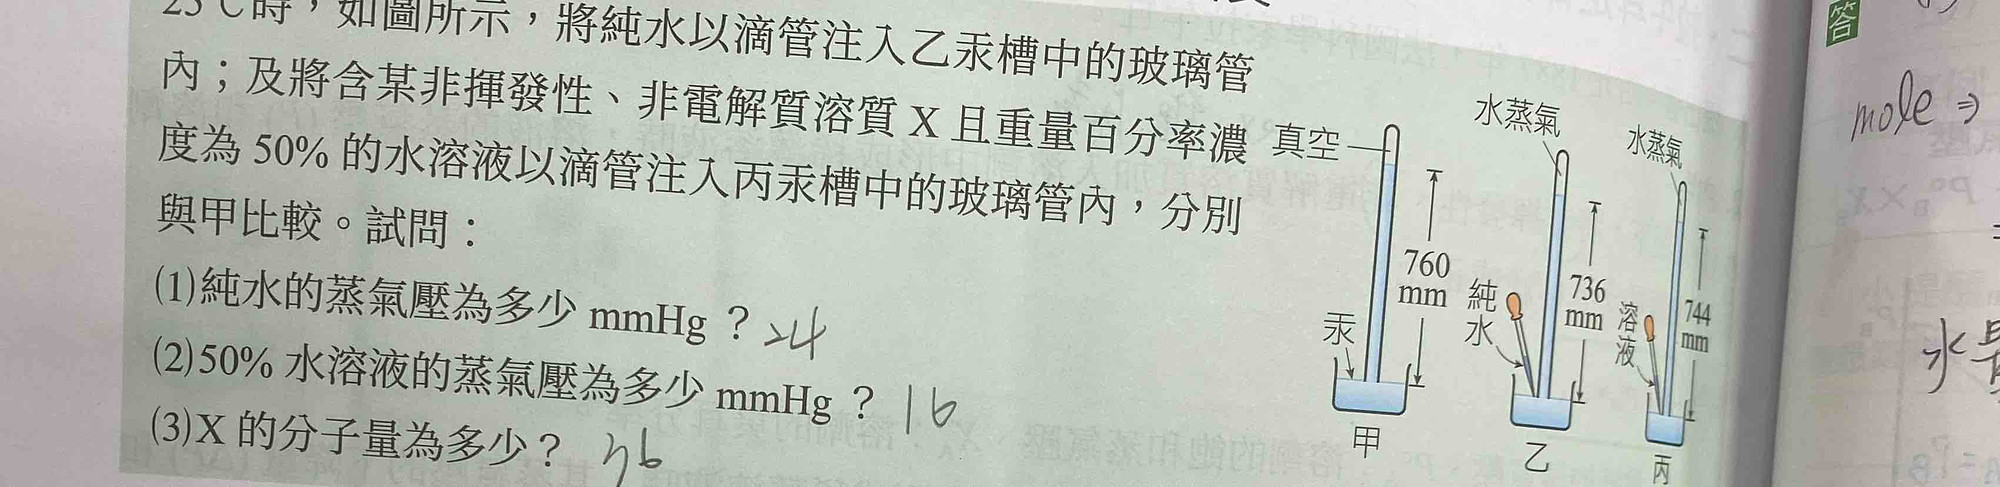 25℃時，如圖所示，將純水以滴管注入乙汞槽中的玻璃管
內；及將含某非揮發性、非電解質溶質 X 且重量百分率濃
度為 50% 的水溶液以滴管注入丙汞槽中的玻璃管內，分別
與甲比較。試問：
(1)純水的蒸氣壓為多少 mmHg ？ 24
(2)50% 水溶液的蒸氣壓為多少 mmHg ？ 16
(3)X 的分子量為多少？ 36
真空
水蒸氣
水蒸氣
760
mm
汞
甲
純水
736
mm
乙
溶液
744
mm
丙
答
mole ⇒
水